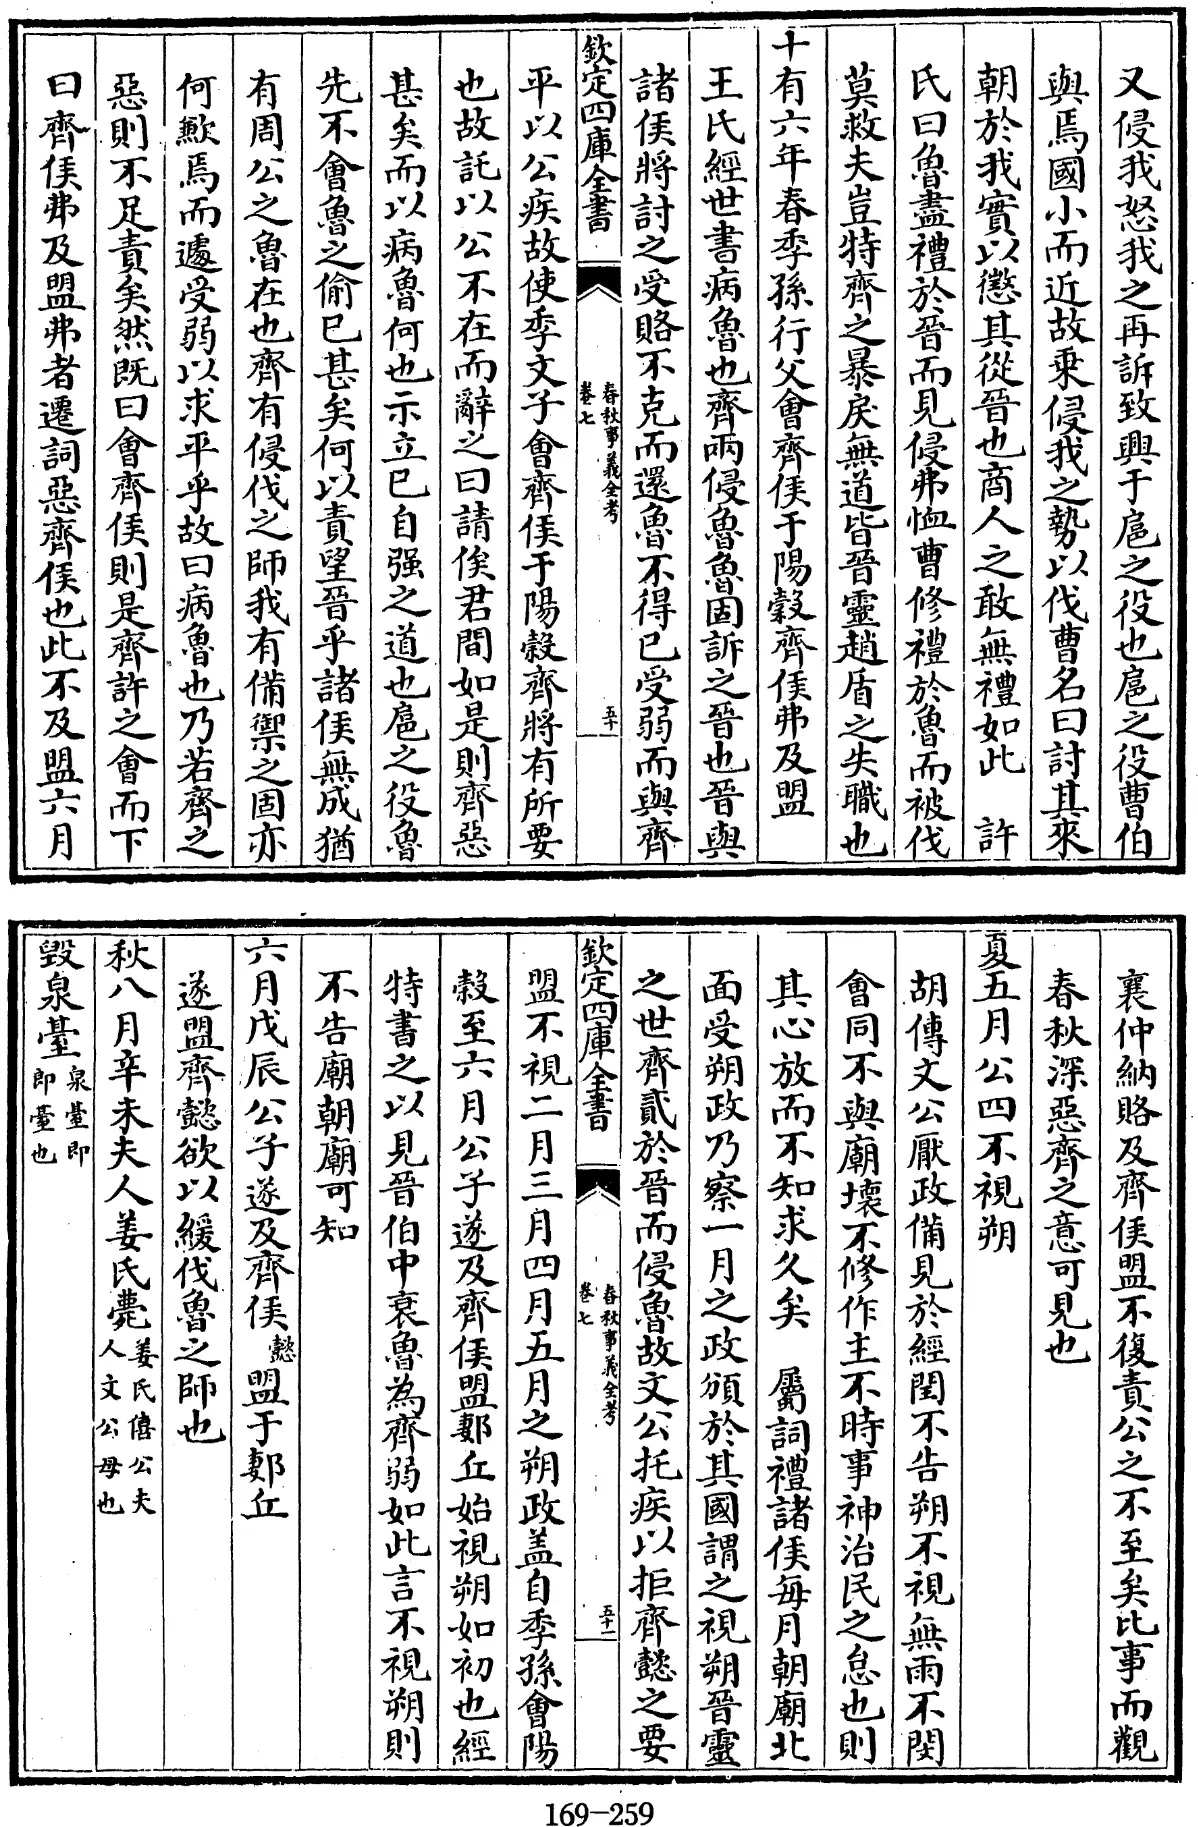 又侵我怒我之再訴致興于扈之役也扈之役曹伯
與焉國小而近故乗侵我之勢以伐曹名曰討其來
朝於我實以懲其從晉也商人之敢無禮如此　許
氏曰魯盡禮於晉而見侵弗恤曹修禮於魯而被伐
莫救夫豈特齊之暴戾無道皆晉靈趙盾之失職也
十有六年春季孫行父會齊侯于陽穀齊侯弗及盟
王氏經世書病魯也齊兩侵魯魯固訴之晉也晉與
諸侯將討之受賂不克而還魯不得已受弱而與齊
欽定四庫全書
春秋事義全考
卷七
五十
平以公疾故使季文子會齊侯于陽穀齊將有所要
也故託以公不在而辭之曰請俟君間如是則齊惡
甚矣而以病魯何也示立已自强之道也扈之役魯
先不會魯之偷已甚矣何以責望晉乎諸侯無成猶
有周公之魯在也齊有侵伐之師我有備禦之固亦
何歉焉而遽受弱以求平乎故曰病魯也乃若齊之
惡則不足責矣然既曰會齊侯則是齊許之會而下
曰齊侯弗及盟弗者遷詞惡齊侯也此不及盟六月
襄仲納賂及齊侯盟不復責公之不至矣比事而觀
春秋深惡齊之意可見也
夏五月公四不視朔
胡傳文公厭政備見於經閏不告朔不視無雨不閔
會同不與廟壞不修作主不時事神治民之怠也則
其心放而不知求久矣　屬詞禮諸侯每月朝廟北
面受朔政乃察一月之政頒於其國謂之視朔晉靈
之世齊貳於晉而侵魯故文公托疾以拒齊懿之要
欽定四庫全書
春秋事義全考
卷七
五十一
盟不視二月三月四月五月之朔政盖自季孫會陽
穀至六月公子遂及齊侯盟郪丘始視朔如初也經
特書之以見晉伯中衰魯為齊弱如此言不視朔則
不告廟朝廟可知
六月戊辰公子遂及齊侯懿盟于郪丘
遂盟齊懿欲以緩伐魯之師也
秋八月辛未夫人姜氏薨姜氏僖公夫人文公母也
毀泉臺泉臺即郎臺也
169-259